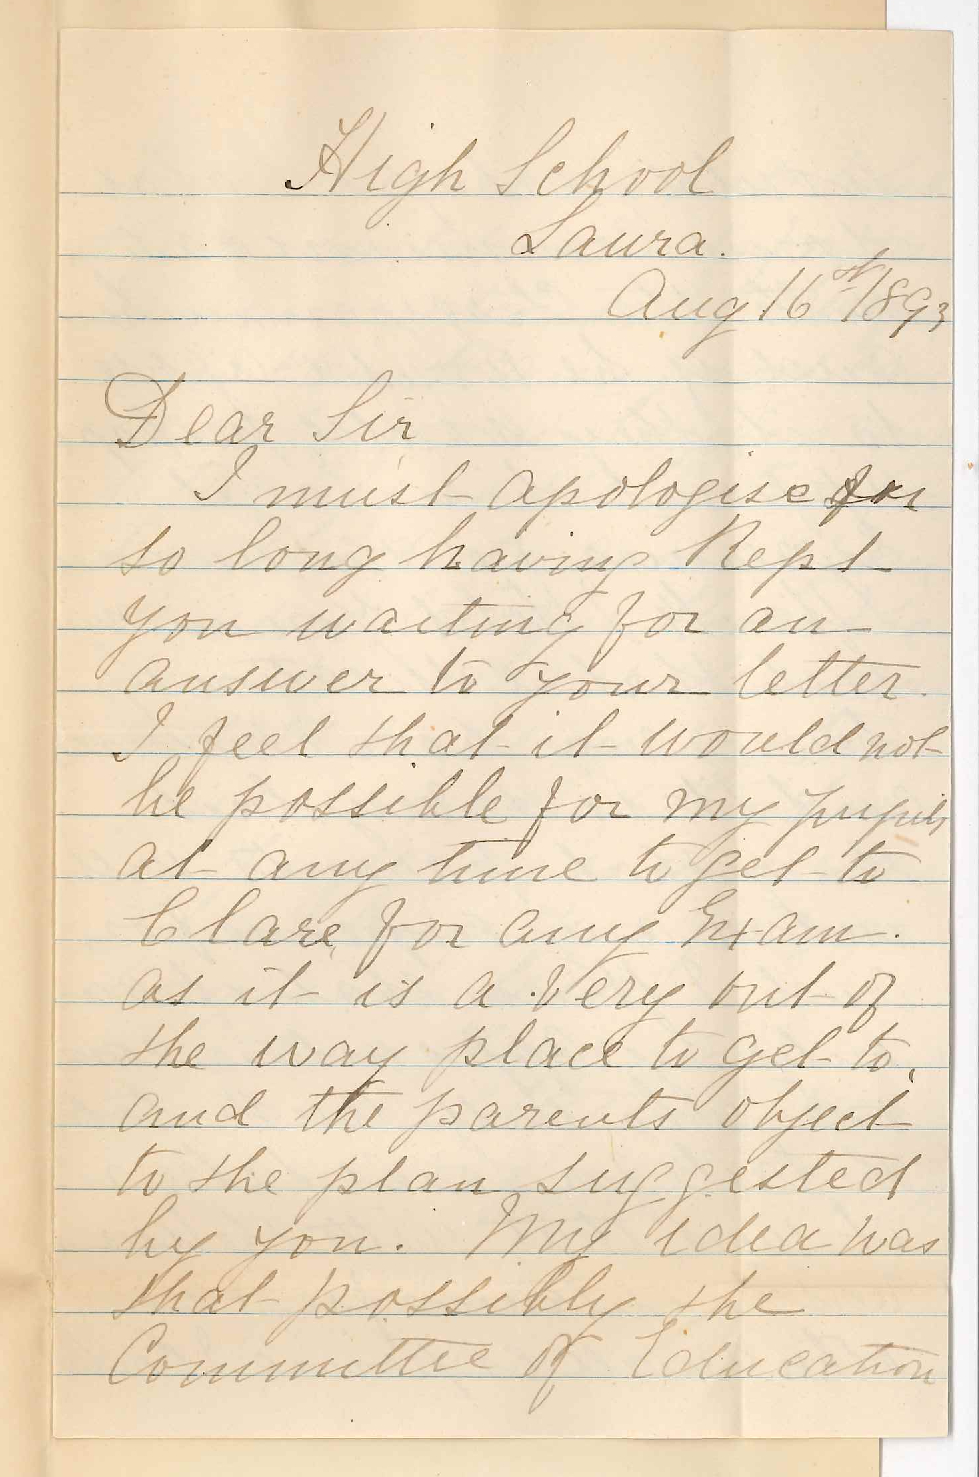 High School
Laura.
Aug 16th/893
Dear Sir
I must apologise for
so long having kept
you waiting for an
answer to your letter.
I feel that it would not
be possible for my pupils
at any time to get to
Clare, for any Exam.
as it is a very out of
the way place to get to,
and the parents object
to the plan suggested
by you. My idea was
that possibly the
Committee of Education